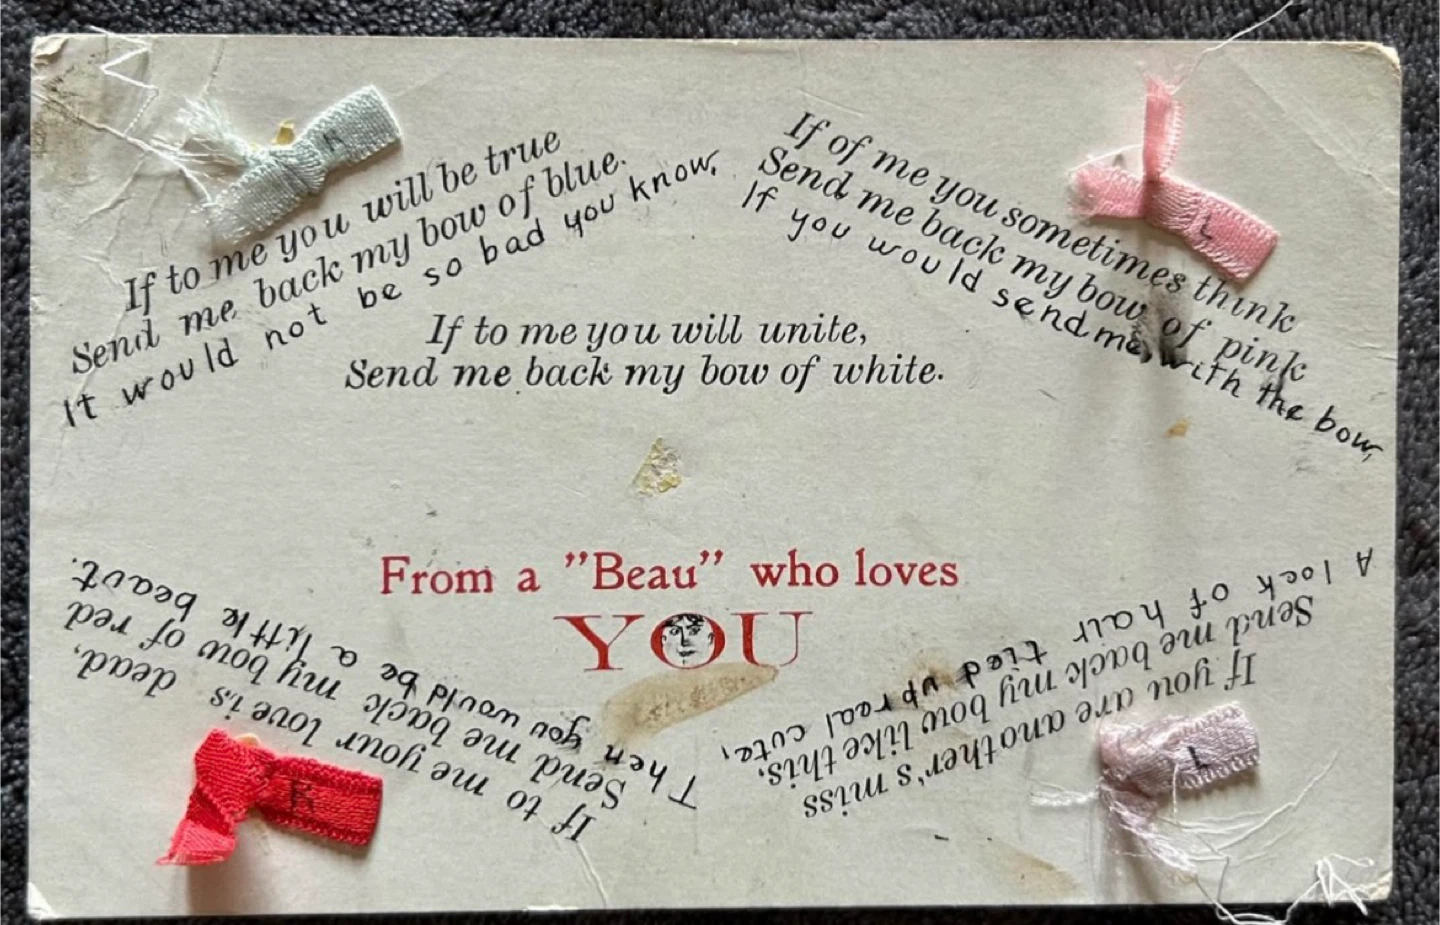 If to me you will be true
Send me back my bow of blue.
It would not be so bad you know.
If of me you sometimes think
Send me back my bow of pink
If you would send me, with the bow,
L
If to me you will unite,
Send me back my bow of white.
From a "Beau" who loves
YOU
If you are another's miss
Send me back my bow like this,
A lock of hair tied up real cute,
If to me your love is dead,
Send me back my bow of red
Then you would be a little beaut.